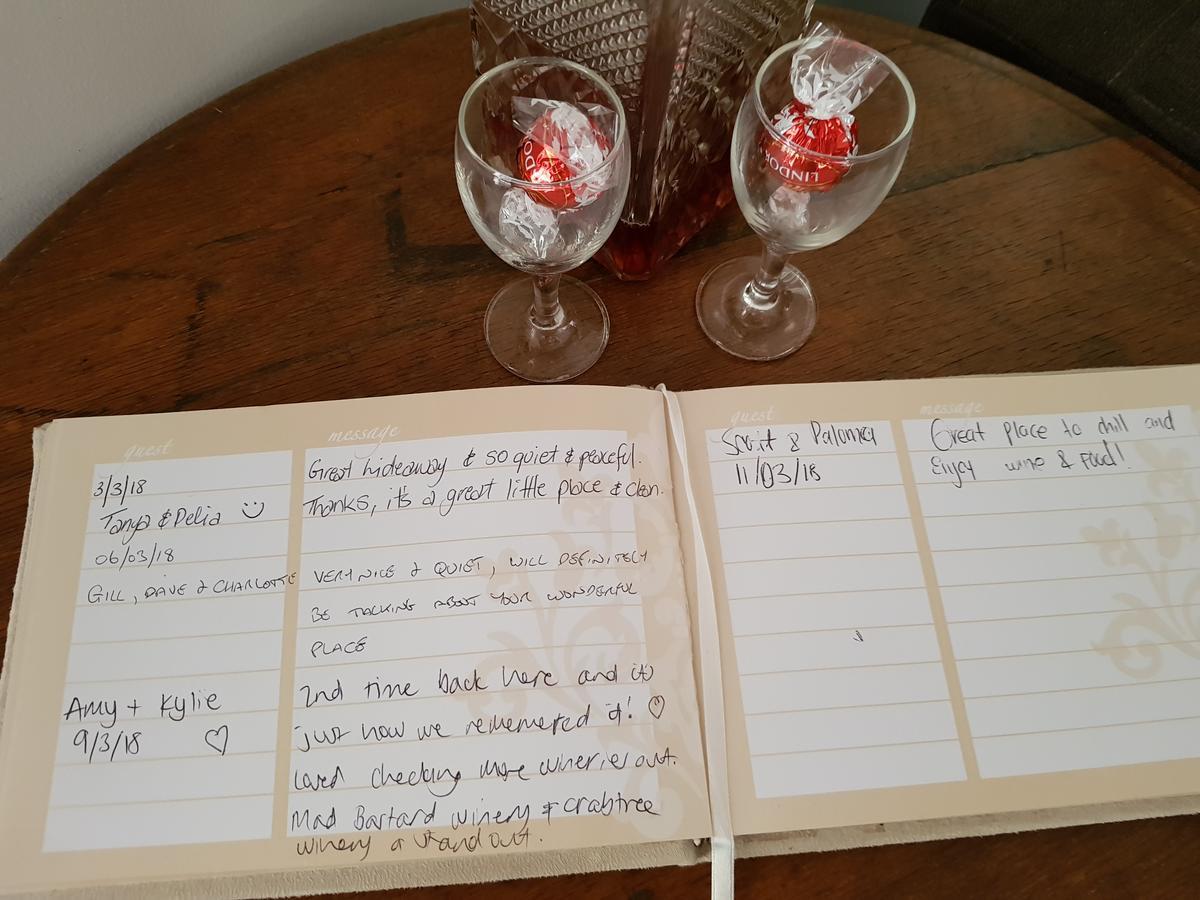 LINDOR
LINDOR
guest
message
3/3/18
Great hideaway & so quiet & peaceful.
Tanya & Delia
Thanks, it's a great little place & clean.
06/03/18
GILL, DAVE & CHARLOTTE
VERY NICE & QUIET, WILL DEFINITELY
BE TALKING ABOUT YOUR WONDERFUL
PLACE
Amy + Kylie
9/3/18
2nd time back here and its
just how we rememered it!
Loved checking more wineries out.
Mad Bastard winery & crabtree
winery a stand out.
guest
message
& Paloma
11/03/18
Great place to chill and
Enjoy wine & Food!